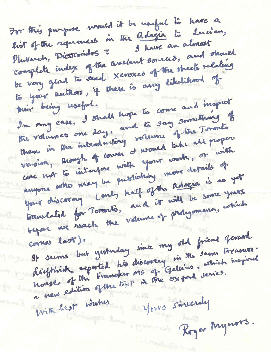 For this purpose would it be useful to have a
list of the references in the Adagia to Lucian,
Plutarch, Dioscorides? I have an almost
complete index of the ancient sources, and should
be very glad to send xeroxes of the sheets relating
to your author, if there is any likelihood of
their being useful.
In any case, I shall hope to come and inspect
the volumes one day, and to say something of
them in the introductory volume of the Toronto
version, though of course I would take all proper
care not to interfere with your work, or with
anyone who may be publishing more details of
your discovery (only half of the Adagia is as yet
translated for Toronto, and it will be some years
before we reach the volume of prolegomena, which
comes last).
It seems but yesterday since my old friend Gerard
reported his discovery in the same
house of the MS of Gellius, which inspired
a new edition of the text in the Oxford series.
With best wishes
Yours sincerely
Roger Mynors.